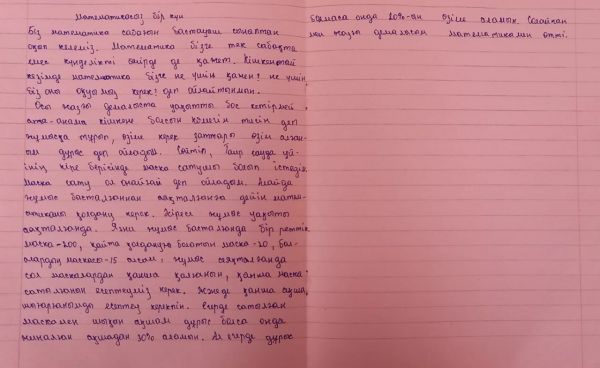 Математикасыз бір күн
Біз математика сабағын бастауыш сыныптан
оқып келеміз. Математика бізге тек сабақта
емес күнделікті өмірде де қажет. Кішкентай
кезімде математика бізге не үшін қажет? не үшін
біз оны оқуымыз керек? деп ойлайтынмын.
Осы жазғы демалыста уақытты бос кетірмей
ата-анама кішкене болсын көмегім тисін деп
жұмысқа тұрып, өзіме керек заттарды өзім алға-
ным дұрыс деп ойладым. Сөйтіп, сауда үй-
інің кіре берісінде маска сатушы болып істедім.
маска сату ол оңай ғой деп ойладым. Алайда
жұмыс басталғаннан аяқталғанға дейін матем-
атиканы қолдану керек. Әсіресе жұмыс уақыты
аяқталғанда. Яғни жұмыс басталғанда бір реттік
маска-200, қайта қолдануға болатын маска-20, бал-
алардың маскасы-15 алсам, жұмыс аяқталғанда
сол маскалардан қанша қалғанын, қанша маска
сатылғанын есептеуіміз керек. Және де қанша ақша
шығарғанымды есептеу керекпін. Егерде сатылған
маскамен шыққан ақшам дұрыс болса онда
жиналған ақшадан 30% аламын. Ал егерде дұрыс
болмаса онда 20%-ын өзіме аламын. Осылайша
мен жазғы демалысым математикамен өтті.